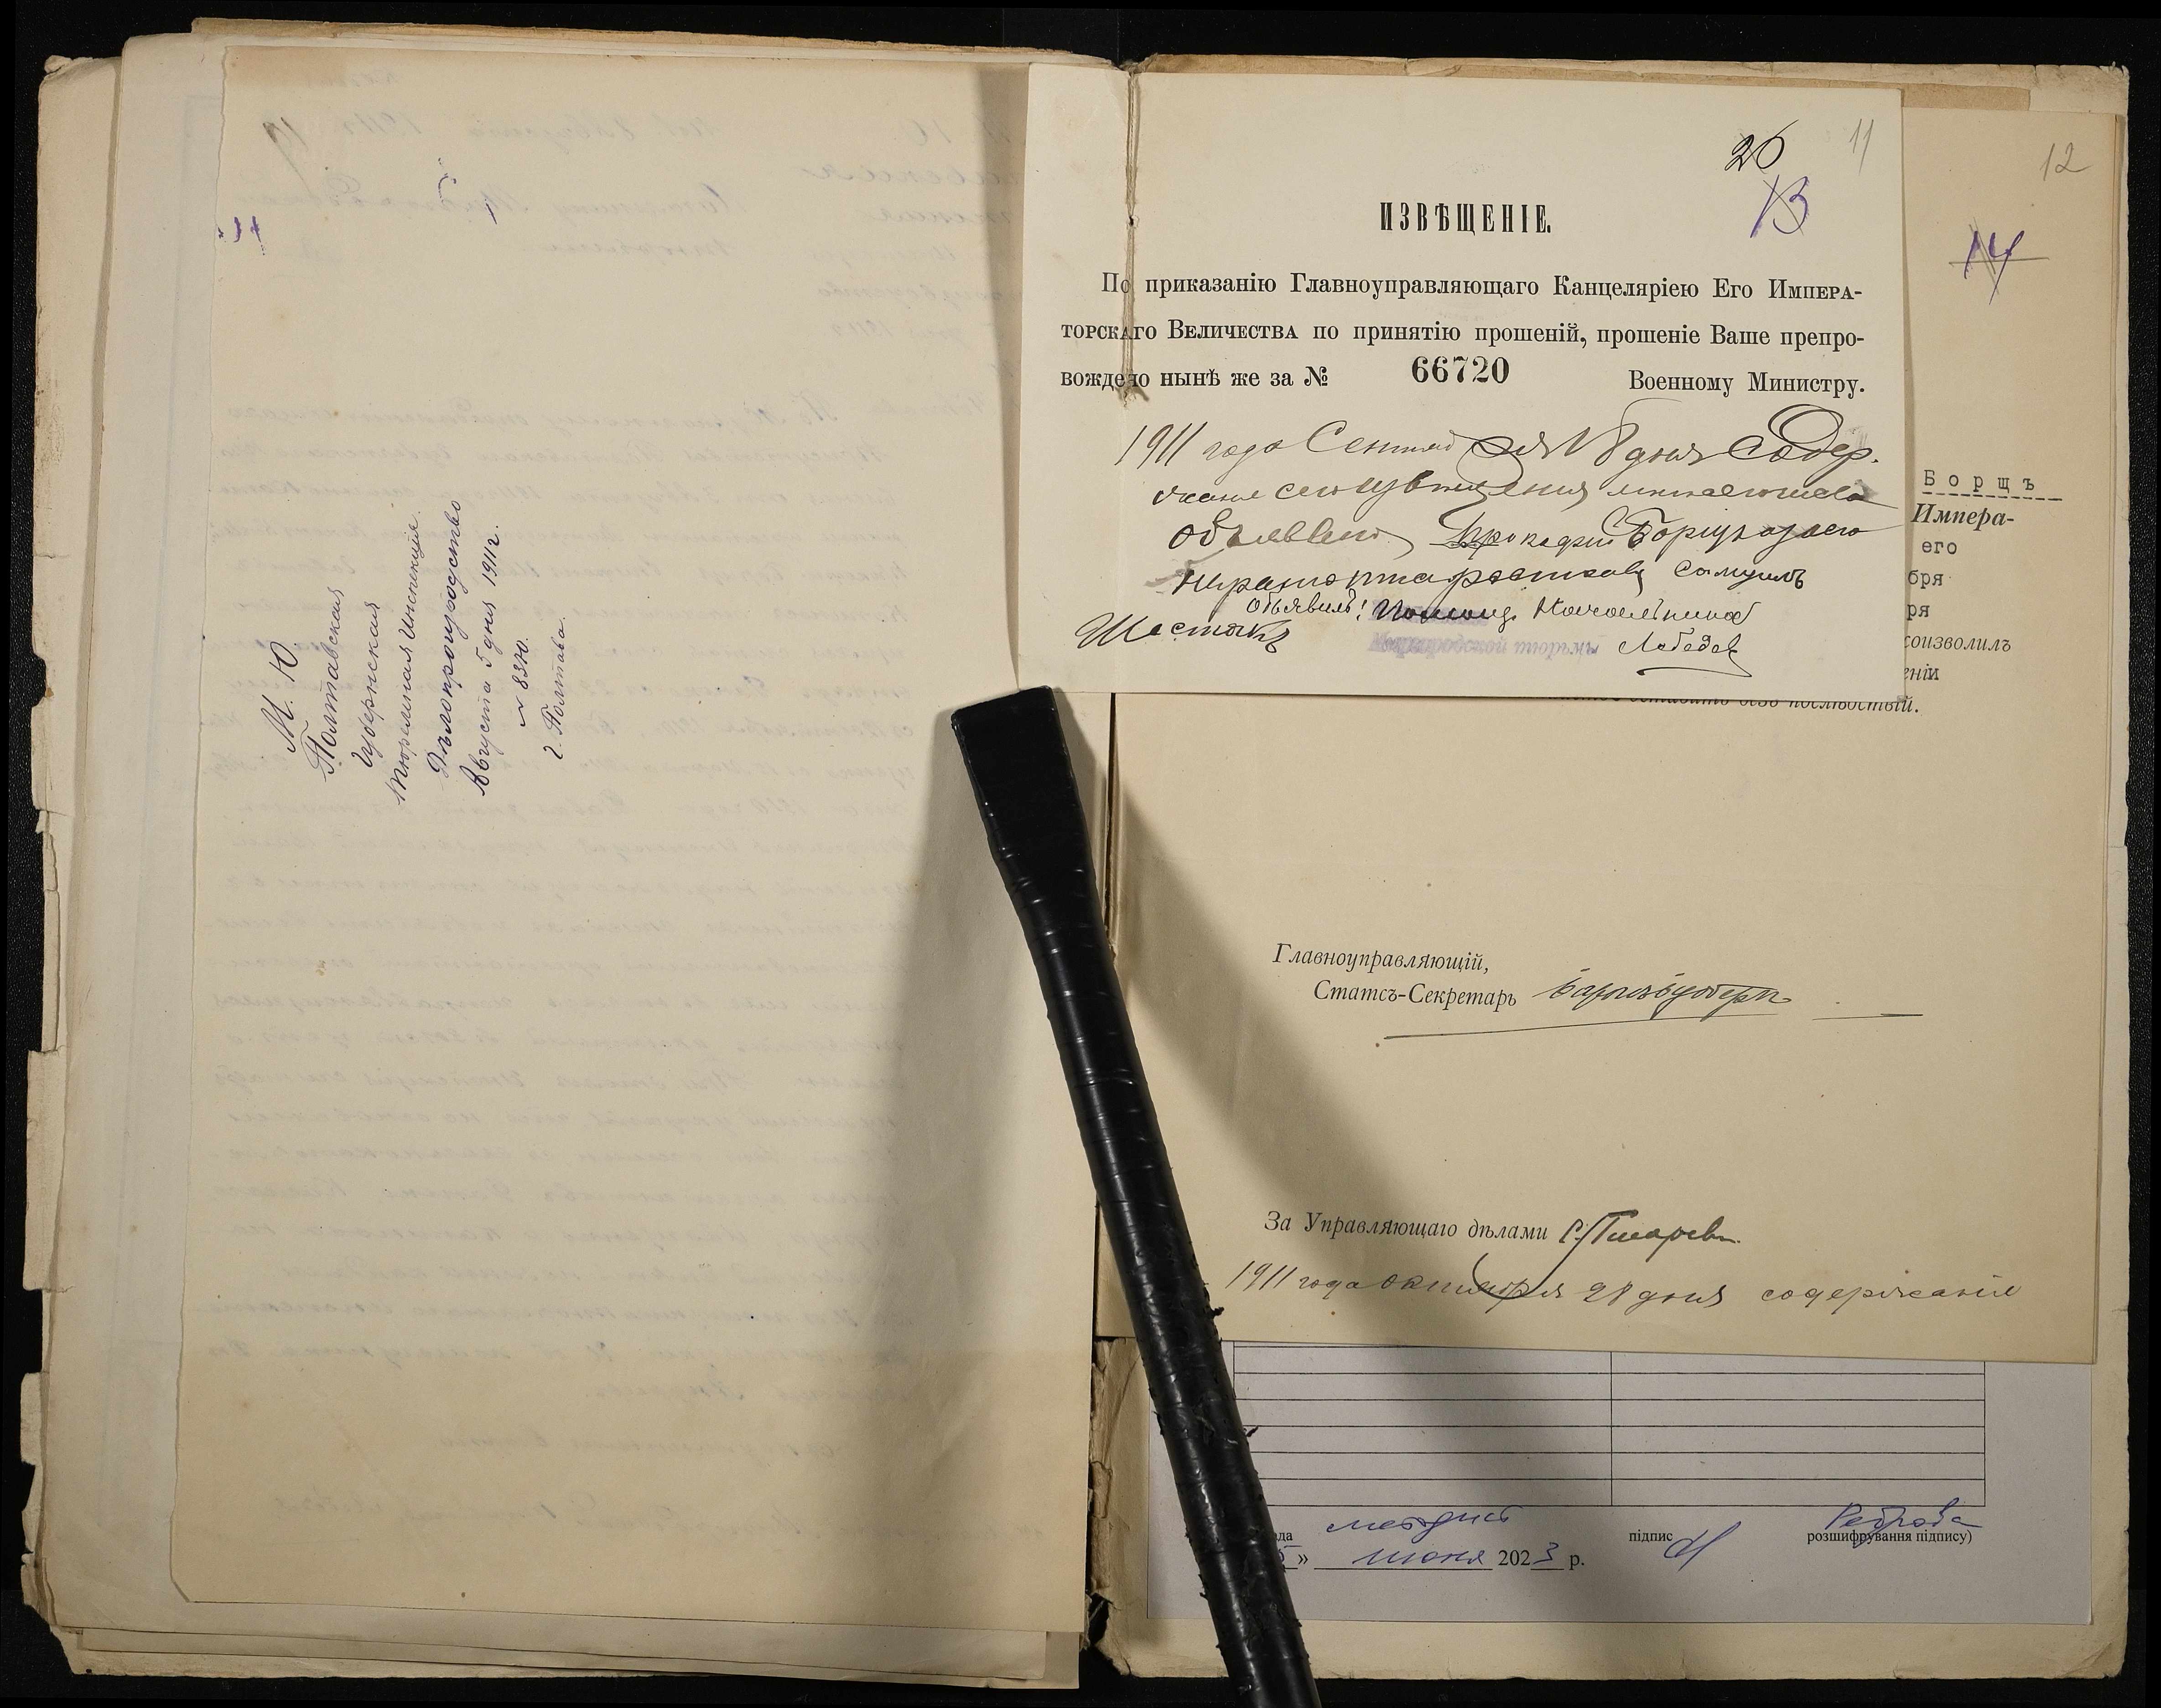 М. Ю.
Полтавская
Губернская
Тюремная Инспекція.
Дѣлопроизводство
Августа 5 дня 1911 г.
№ 8370.
г. Полтава.
26
11
13
ИЗВѢЩЕНІЕ.
По приказанію Главноуправляющаго Канцеляріею Его Импера-
торскаго Величества по принятію прошеній, прошеніе Ваше препро-
вождено нынѣ же за № 66720 Военному Министру.
1911 года Сентября 18 дня Содер-
жание сего извѣщения мнѣ
объявлено Прокофий Борщ
неграмотна росписался Самуилъ
Шестакъ
Объявилъ: Помощ. Начальника
Миргородской тюрьмы Лебедев
12
14
Борщъ
Импера-
его
бря
ря
соизволилъ
еніи
оставить безъ послѣдствій.
Главноуправляющій,
Статсъ-Секретарь баронъ Будбергъ
За Управляющаго дѣлами С. Писарев
1911 года октября 28 дня содержание
ада
» июня 2023 р.
підпис
Реброва
розшифрування підпису)